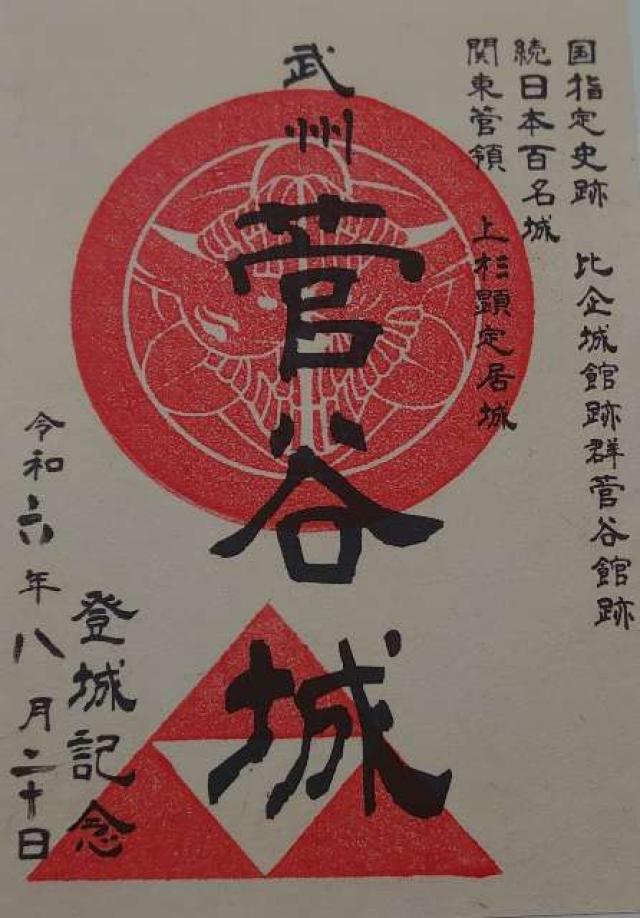 国指定史跡 比企城館跡群菅谷館跡
続日本百名城
関東管領 上杉顕定居城
武州
菅谷城
登城記念
令和六年八月二十日